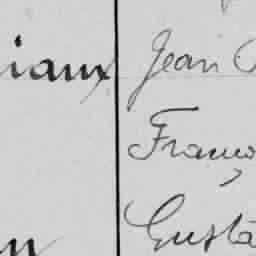 iaux Jean
Franço
Gusta